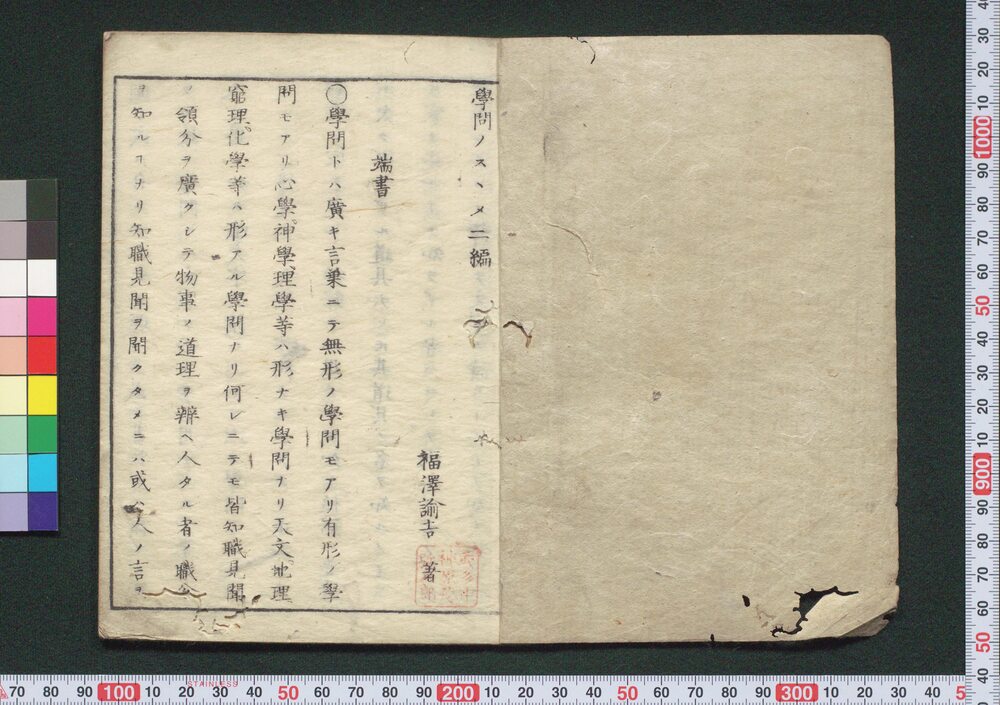 學問ノスヽメ二編
福澤諭吉 著
端書
○學問トハ廣キ言葉ニテ無形ノ學問モアリ有形ノ學
問モアリ心學神學理學等ハ形ナキ學問ナリ天文地理
窮理化學等ハ形アル學問ナリ何レニテモ皆知職見聞
ノ領分ヲ廣クシテ物事ノ道理ヲ辨ヘ人タル者ノ職分
ヲ知ルヿナリ知職見聞ヲ開クタメニハ或ハ人ノ言ヲ
70 80 90 100 10 20 STAINLESS 30 40 50 60 70 80 90 200 10 20 30 40 50 60 70 80 90 300 10 20 30 40 5
40 30 20 10 1000 90 80 70 60 50 40 30 20 10 900 90 80 70 60 50 40